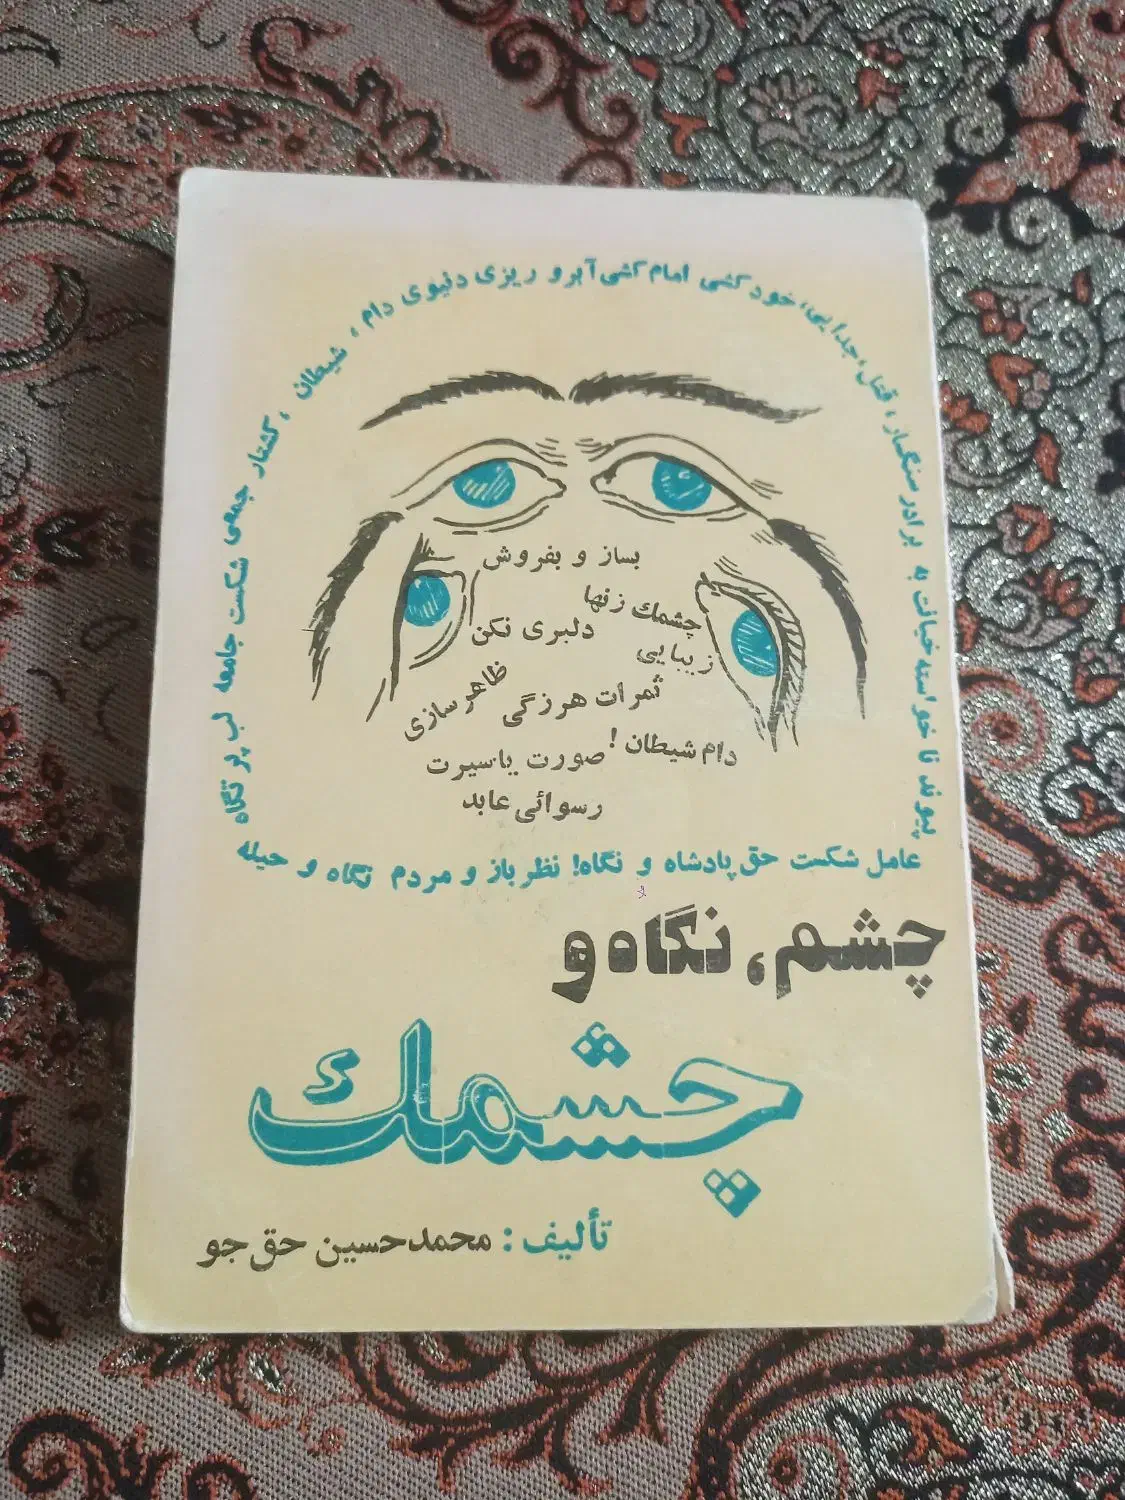 عامل شکست حق پادشاه و نگاه! نظرباز و مردم نگاه و حیله
پیوند ناخواسته خیانت به برادر سنگسار، قتل، جدایی، خودکشی امام کشی آبرو ریزی دنیوی دام، شیطان، کشتار جمعی شکست جامعه لب پرتگاه
بساز و بفروش
چشمك زنها
دلبری نکن
زیبایی
ظاهر سازی
ثمرات هرزگی
دام شیطان!
صورت یا سیرت
رسوائی عابد
چشم، نگاه و
چشمك
تألیف: محمدحسین حق جو